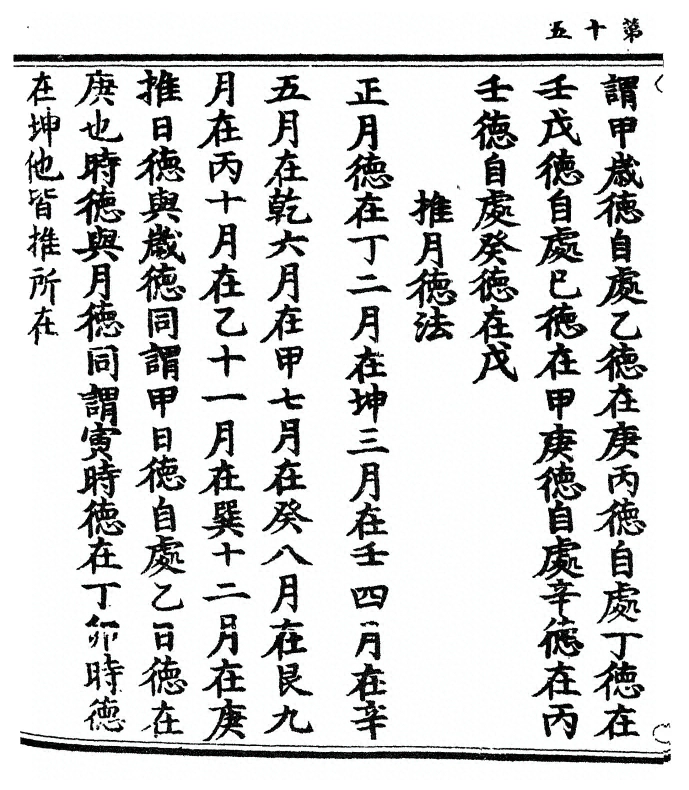 第十五
謂甲歲德自處乙德在庚丙德自處丁德在
壬戊德自處巳德在甲庚德自處辛德在丙
壬德自處癸德在戊
推月德法
正月德在丁二月在坤三月在壬四月在辛
五月在乾六月在甲七月在癸八月在艮九
月在丙十月在乙十一月在巽十二月在庚
推日德與歲德同謂甲日德自處乙日德在
庚也時德與月德同謂寅時德在丁卯時德
在坤他皆推所在